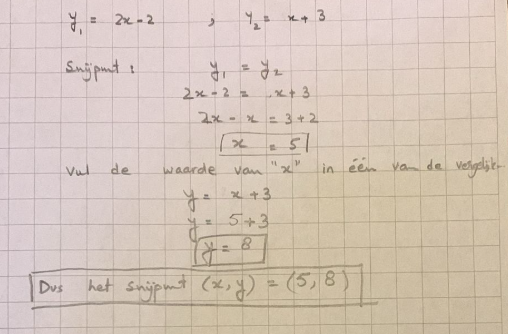 y₁ = 2x - 2 ; y₂ = x + 3
Snijpunt : y₁ = y₂
2x - 2 = x + 3
2x - x = 3 + 2
x = 5
Vul de waarde van "x" in één van de vergelijk.
y = x + 3
y = 5 + 3
y = 8
Dus het snijpunt (x, y) = (5, 8)